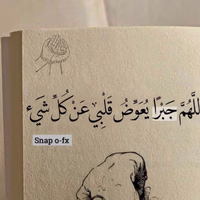 اللَّهُمَّ جَبْرًا يُعَوِّضُ قَلْبِي عَنْ كُلِّ شَيْء
Snap o-fx